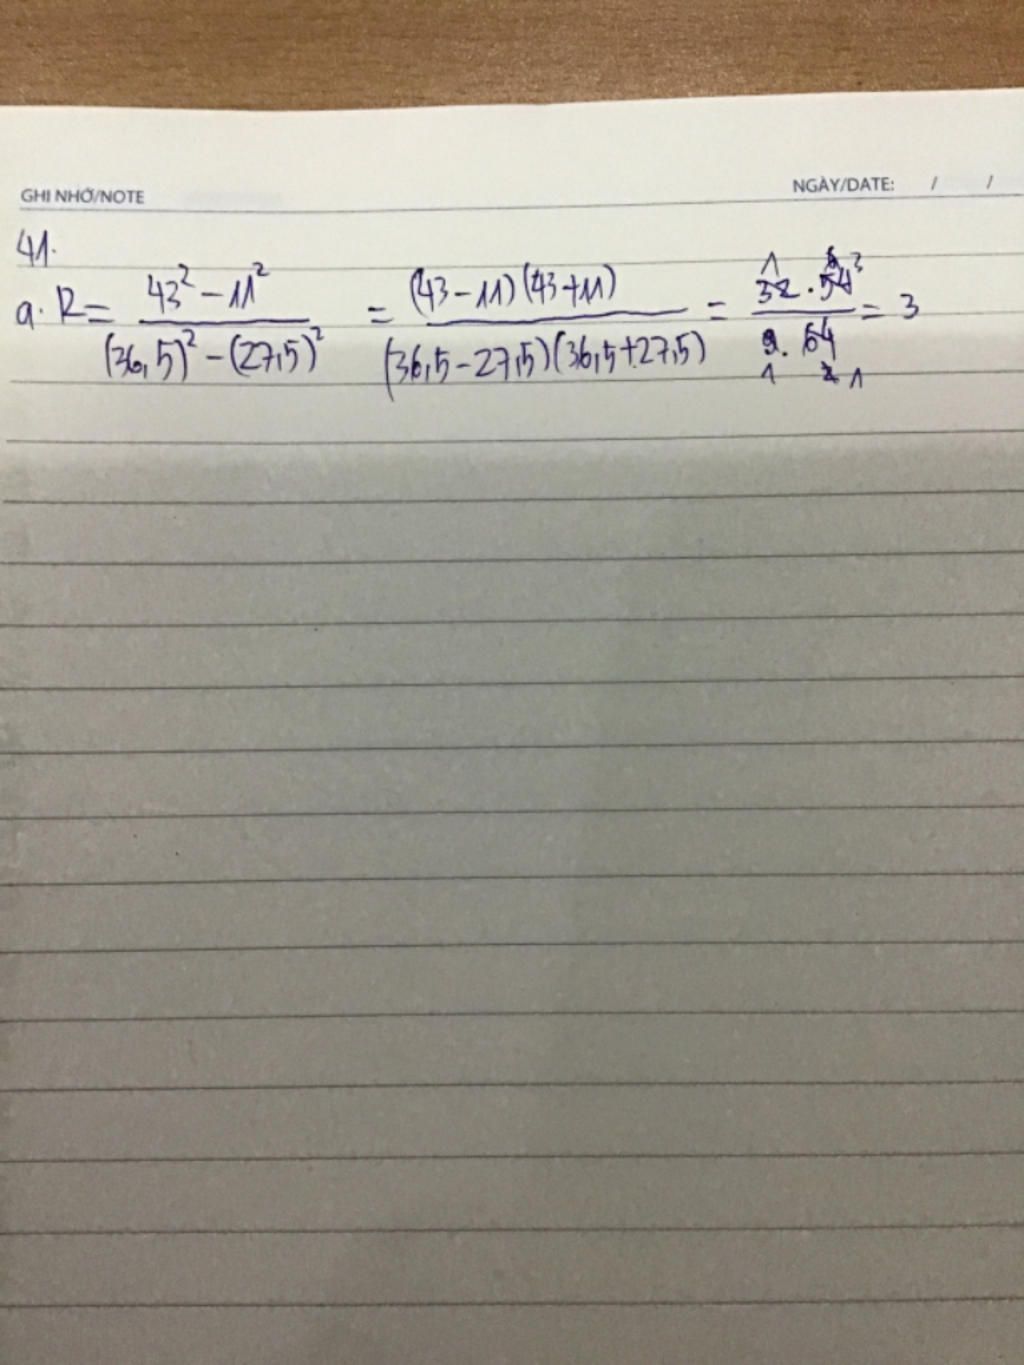 GHI NHỚ/NOTE NGÀY/DATE: / /
41.
a. R = \frac{43² - 11²}{(36,5)² - (27,5)²} = \frac{(43 - 11)(43 + 11)}{(36,5 - 27,5)(36,5 + 27,5)} = \frac{32 . 54}{9 . 64} = 3